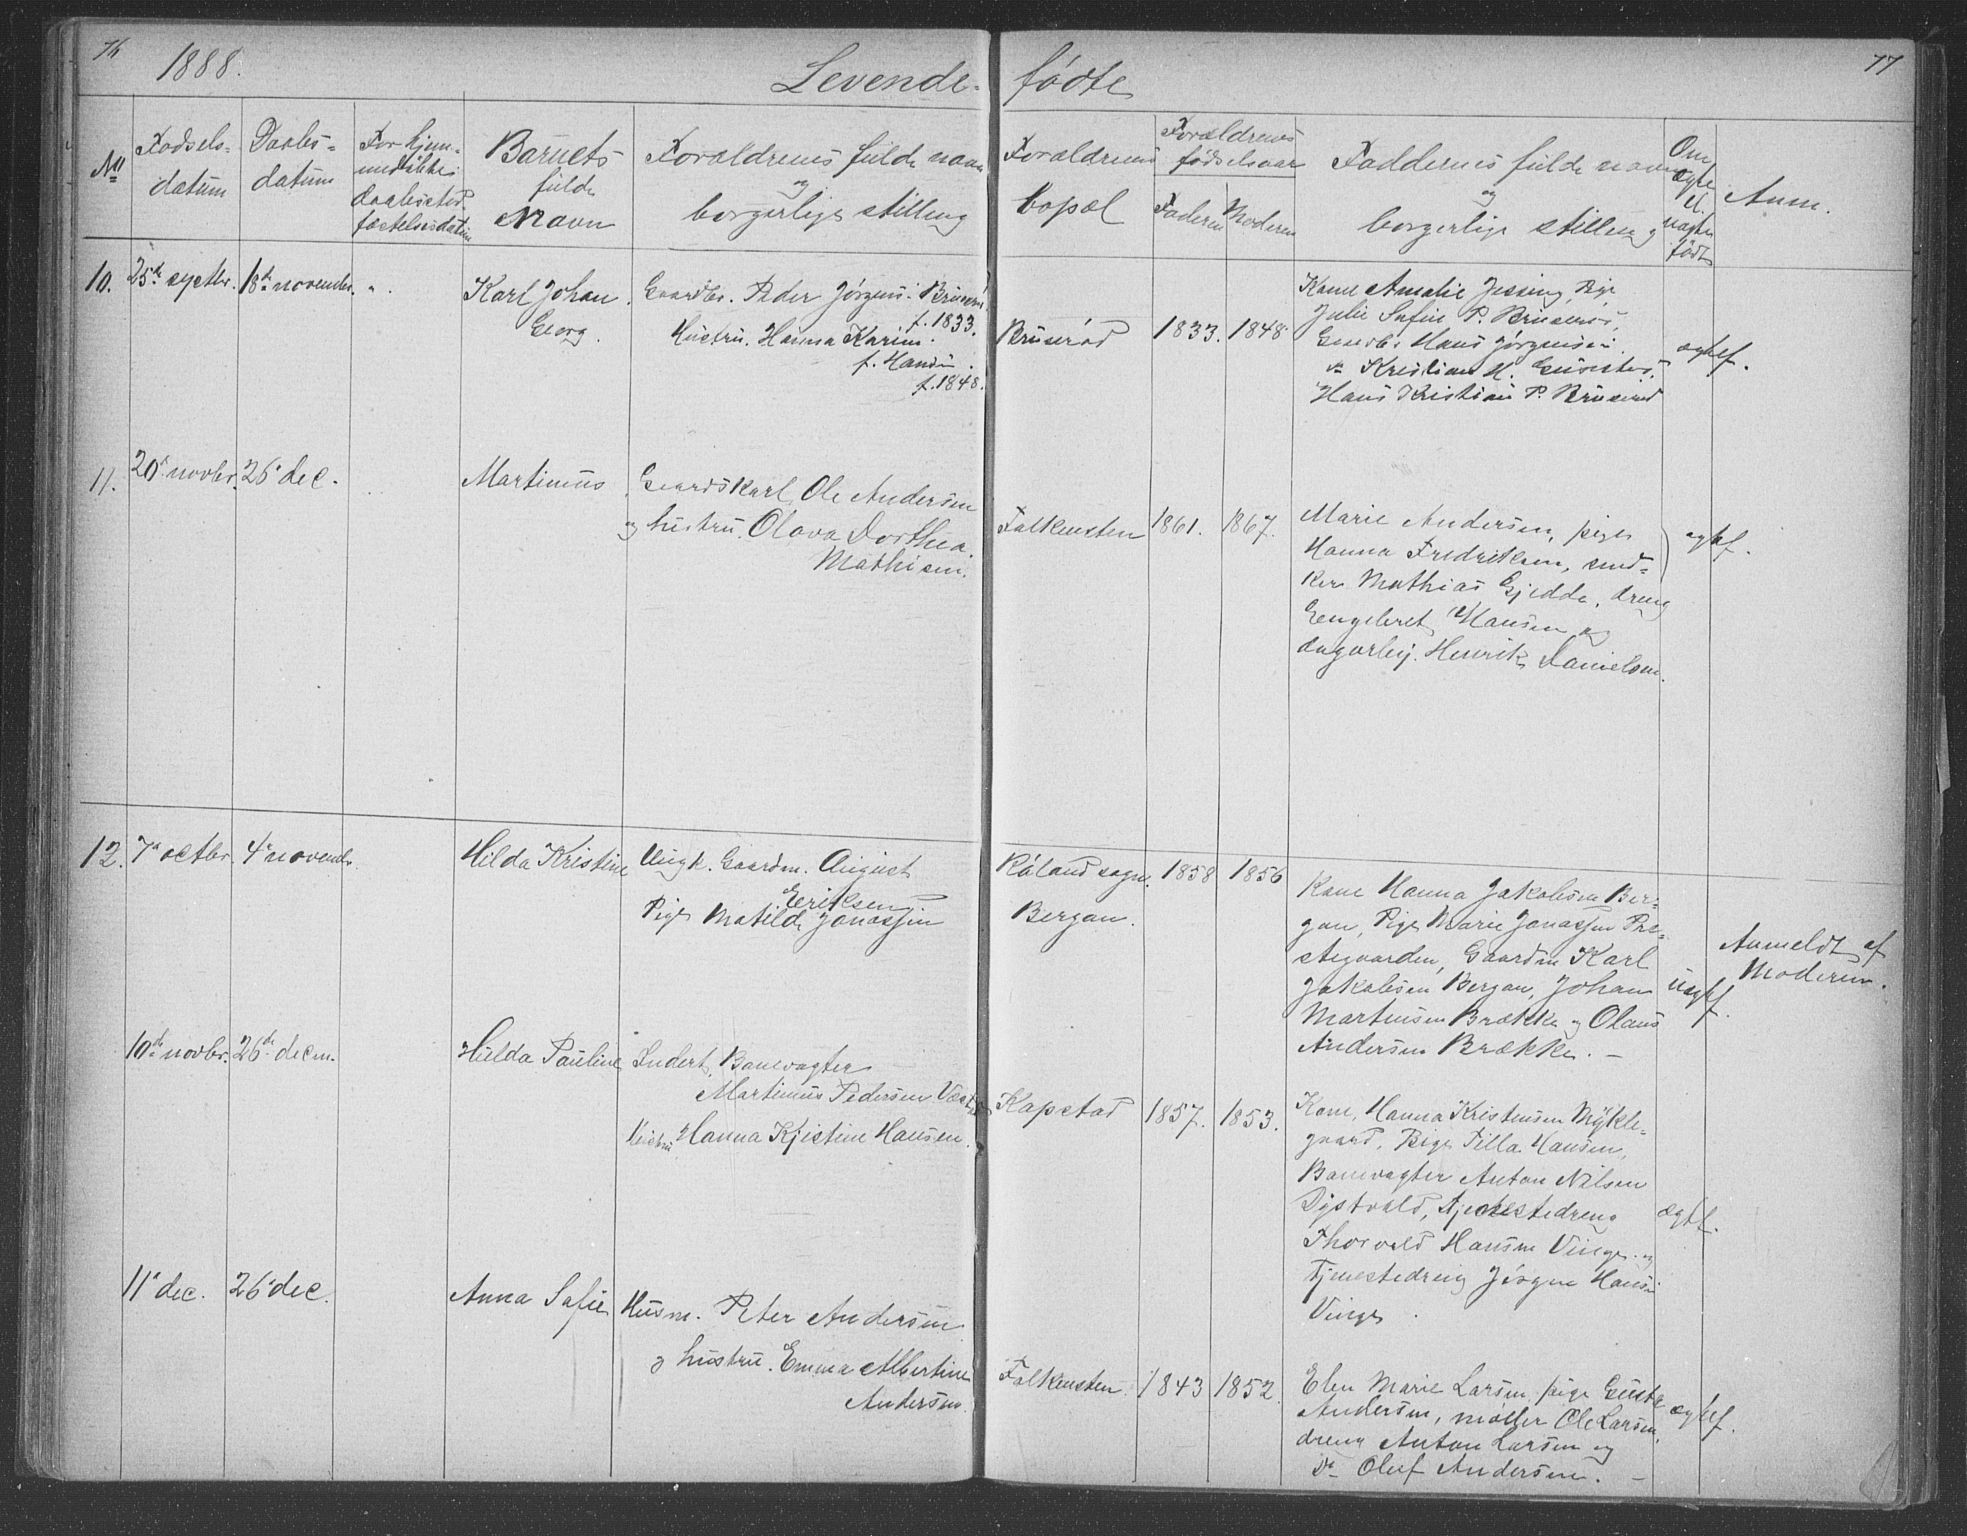 76 1888. Levende- fødte 77
No
Fødsels-
datum
Daabs-
datum
daabssted
Barnets
fulde
Navn
Forældrenes fulde navn
og
borgerlige stilling
Forældrenes
bopæl
Forældrenes
fødselsaar
Faderen Moderen
Faddernes fulde navn
og
borgerlige stilling
Om
ægte
el.
uægte
født
Anm.
10. 25de septbr. 18de novembr. "
Karl Johan
Georg.
Gaardbr. Peder Jørgens.
f. 1833.
Hustru. Hanna Karine
f. Hans.
f. 1848.
Brunerød 1833. 1848
Kone Amalie Jessing, Pige
Julie Safie P.
Hans Jørgensen
Kristian H.
Hans Kristian P.
ægtef.
11. 20de novbr. 26de dec.
Martinus
Gaardskarl Ole Andersen
og hustru Olava Dorthea
Mathisen.
Falkensten 1861. 1867.
Marie Andersen, pige
Hanna Fredriksen, sned-
ker Mathias Gjedde, dreng
Engebret Hansen og
dagarbej. Henrik Danielsen.
ægtef.
12. 7de octbr. 4de novembr.
Hilda Kristine
Ungk. Gaardm. August
Eriksen
Pige Matilde Jonassen
Raaland sogn. 1858 1856
Bergan.
Kone Hanna Jakobsen Ber-
gan, Pige Marie Jonassen Pre-
stegaarden, Gaardm Karl
Jakobsen Bergan, Johan
Martinsen Brække og Olaus
Andersen Brække. —
uægtef.
Anmeldt af
Moderen.
10de novbr. 26de decm.
Hulda Pauline
Indert. Banevogter
Martinus Pedersen
Hustru Hanna Kristine Hansen.
Kapstad 1857. 1853.
Kone, Hanna Kristensen Mykle-
gaard. Pige Tilla Hansen,
Banevogter Anton Nilsen
Tjenestedreng
Thorvald Hansen Vinge og
Tjenestedreng Jørgen Hansen
Vinge.
ægtf.
11de dec. 26de dec.
Anna Safie
Husm. Peter Andersen
og hustru. Emma Albertine
Andersen.
Falkensten. 1843 1852.
Elen Marie Larsen, pige Gusta
Andersen, møller Ole Larsen,
dreng Anton Larsen og
Do Oluf Andersen. —
ægtef.